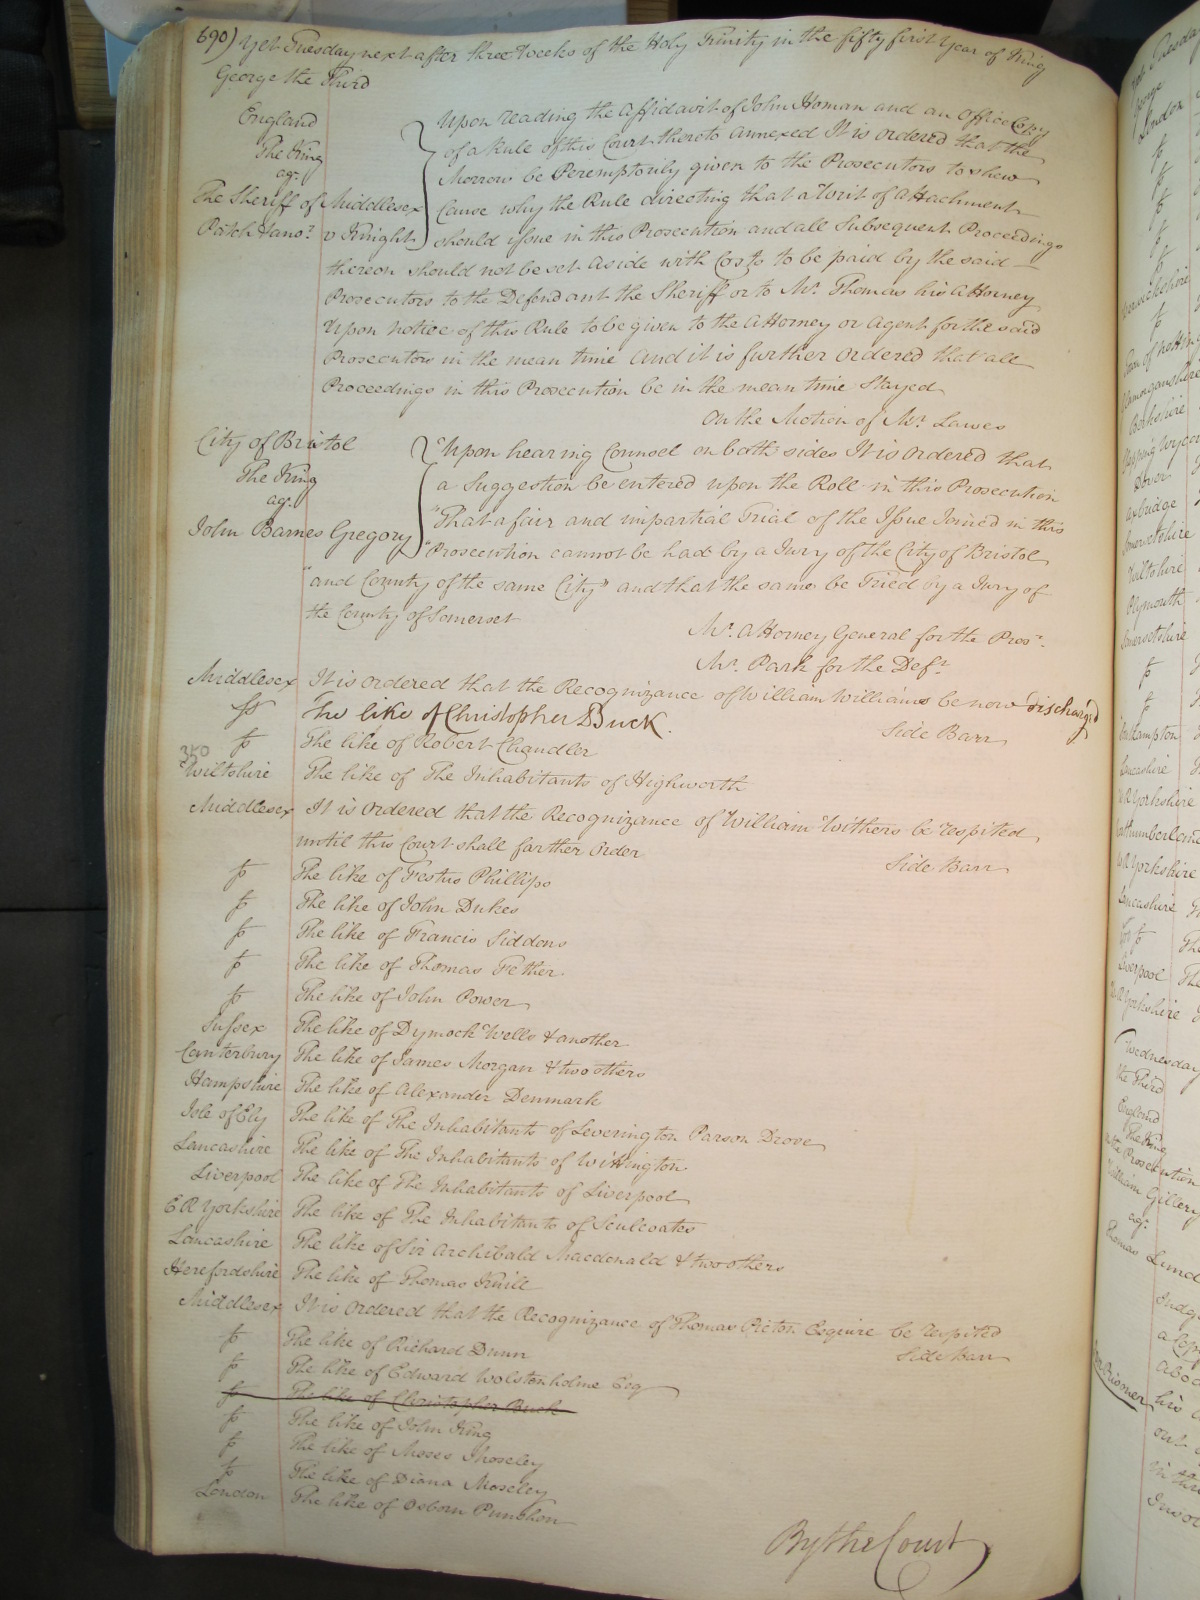 690) Yet Tuesday next after three Weeks of the Holy Trinity in the fifty first Year of King
George the Third
England
The King
agt.
The Sheriff of Middlesex
Patch & ano.r v Knight
Upon reading the Affidavit of John Homan and an Office Copy
of a Rule of this Court thereto annexed It is ordered that the
Morrow be Peremptorily given to the Prosecutors to shew
Cause why the Rule directing that a Writ of Attachment
should issue in this Prosecution and all Subsequent Proceedings
thereon should not be set aside with Costs to be paid by the said
Prosecutors to the Defendant the Sheriff or to Mr. Thomas his Attorney
Upon notice of this Rule to be given to the Attorney or Agent for the said
Prosecutors in the mean time And it is further Ordered that all
Proceedings in this Prosecution be in the mean time Stayed
On the Motion of Mr. Lawes
City of Bristol
The King
agt.
John Barnes Gregory
Upon hearing Counsel on both sides It is ordered that
a Suggestion be entered upon the Roll in this Prosecution
"That a fair and impartial Trial of the Issue Joined in this
"Prosecution cannot be had by a Jury of the City of Bristol
"and County of the same City" and that the same be Tried by a Jury of
the County of Somerset
Mr. Attorney General for the Pros.r
Mr. Park for the Def.t
Middlesex It is ordered that the Recognizance of William Williams be now discharged
fp The like of Christopher Buck. Side Barr
fp The like of Robert Chandler
350
Wiltshire The like of The Inhabitants of Highworth
Middlesex It is Ordered that the Recognizance of William Withers be respited
until this Court shall farther Order Side Barr
fp The like of Festus Phillips
fp The like of John Dukes
fp The like of Francis Siddons
fp The like of Thomas Fether
fp The like of John Power
Sussex The like of Dymock Wells & another
Canterbury The like of James Morgan & two others
Hampshire The like of Alexander Denmark
Isle of Ely The like of The Inhabitants of Leverington Parson Drove
Lancashire The like of The Inhabitants of Wittington
Liverpool The like of The Inhabitants of Liverpool
E R Yorkshire The like of The Inhabitants of Sculcoates
Lancashire The like of Sir Archibald Macdonald & two others
Herefordshire The like of Thomas Knill
Middlesex It is Ordered that the Recognizance of Thomas Picton Esquire be respited
fp The like of Richard Dunn Side Barr
fp The like of Edward Wolstenholme Esq
fp The like of Christopher Buck
fp The like of John King
fp The like of Moses Moseley
fp The like of Diana Moseley
London The like of Osborn Punshon
By the Court